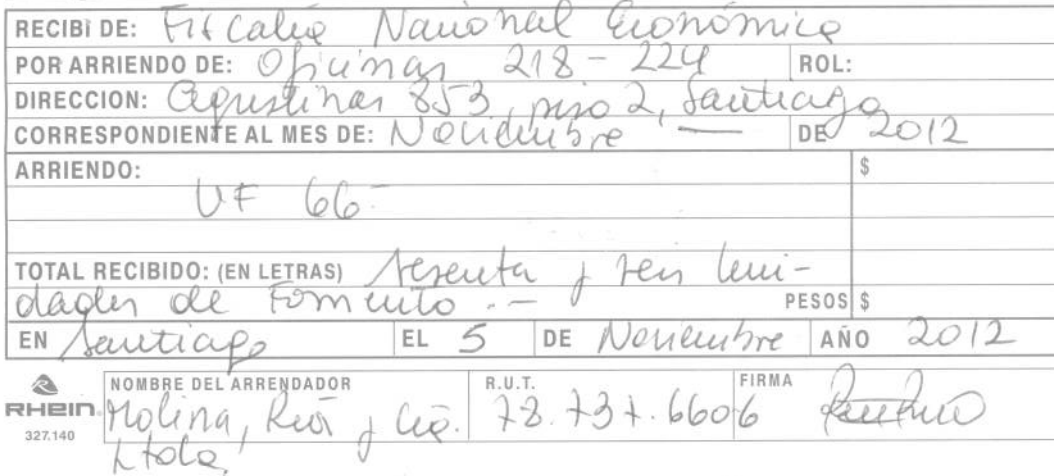 RECIBÍ DE: Fiscalía Nacional Económica
POR ARRIENDO DE: Oficinas 218 - 224 ROL:
DIRECCION: Agustinas 853, piso 2, Santiago
CORRESPONDIENTE AL MES DE: Noviembre — DE 2012
ARRIENDO: $
UF 66.-
TOTAL RECIBIDO: (EN LETRAS) sesenta y seis Uni-
dades de Fomento .- PESOS $
EN Santiago EL 5 DE Noviembre AÑO 2012
NOMBRE DEL ARRENDADOR R.U.T. FIRMA
RHEIN Molina, Ríos y Cía. 78.737.660-6
327.140
Ltda.